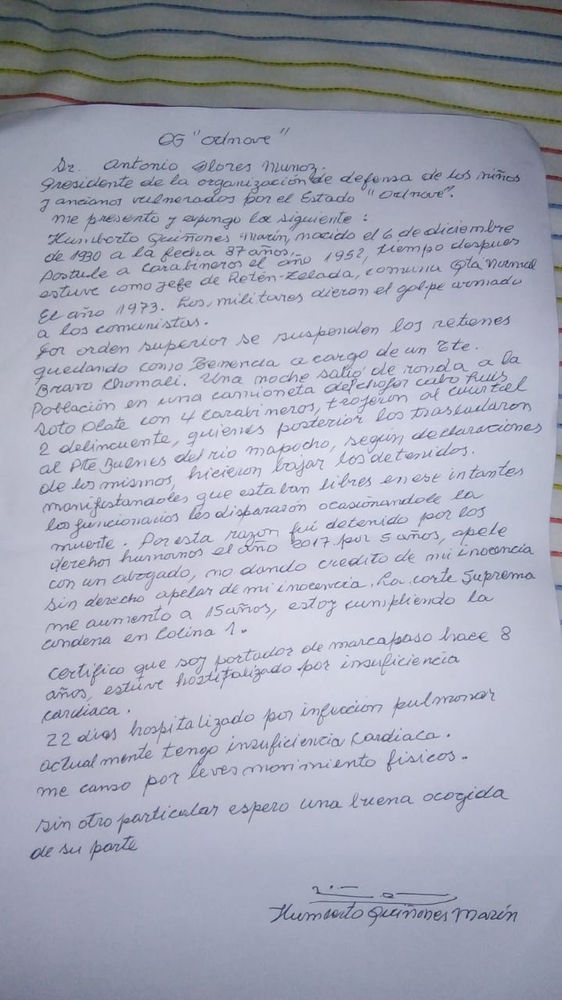 OG "Odnave"
Sr. Antonio Flores Munoz.
Presidente de la organización de defensa de los niños
y ancianos vulnerados por el Estado "Odnave".
me presento y expongo lo siguiente :
Humberto Quiñones Marín, nacido el 6 de diciembre
de 1930 a la fecha 87 años.
Postule a Carabineros el año 1952, tiempo despues
estuve como jefe de Retén-Zelada, comuna Qta Normal
El año 1973. Los, militares dieron el golpe armado
a los comunistas.
Por orden superior se suspenden los retenes
quedando como Tenencia a cargo de un Tte.
Bravo Chomali. Una noche salio de ronda a la
Población en una camioneta del chofer cabo Luis
Soto Olate con 4 Carabineros, trajeron al cuartel
2 delincuente, quienes posterior los trasladaron
al Pte Bulnes del rio mapocho, según declaraciones
de los mismos, hicieron bajar los detenidos.
manifestandoles que estaban libres en ese intantes
los funcionarios les dispararon ocasionandole la
muerte. Por esta razon fui detenido por los
derechos humanos el año 2017 por 5 años, apele
con un abogado, no dando credito de mi inocencia
sin derecho apelar de mi inocencia. La corte Suprema
me aumento a 15 años, estoy cumpliendo la
condena en Colina 1.
certifico que soy portador de marcapaso hace 8
años, estuve hospitalizado por insuficiencia
cardiaca.
22 dias hospitalizado por infeccion pulmonar
actual mente tengo insuficiencia Cardiaca.
me canso por leves movimiento fisicos.
sin otro particular espero una buena acogida
de su parte
Humberto Quiñones Marín